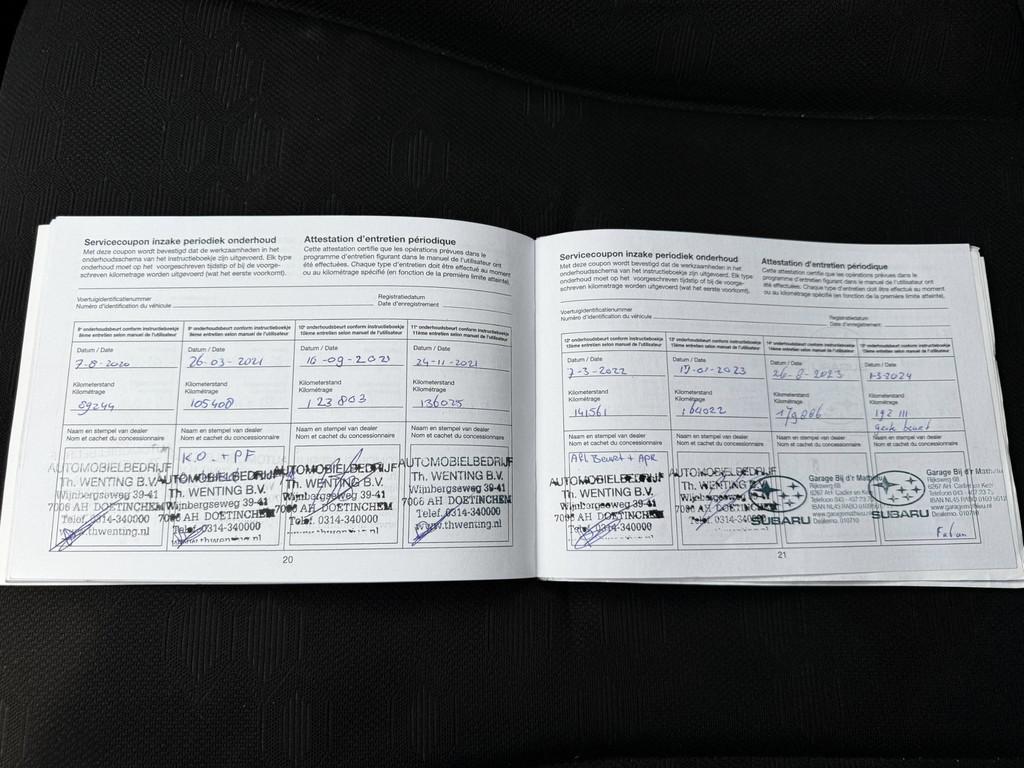 Servicecoupon inzake periodiek onderhoud
Met deze coupon wordt bevestigd dat de werkzaamheden in het
onderhoudsschema van het instructieboekje zijn uitgevoerd. Elk type
onderhoud moet op het voorgeschreven tijdstip of bij de voorge-
schreven kilometrage worden uitgevoerd (wat het eerste voorkomt).
Attestation d'entretien périodique
Cette attestation certifie que les opérations prévues dans le
programme d'entretien figurant dans le manuel de l'utilisateur ont
été effectuées. Chaque type d'entretien doit être effectué au moment
ou au kilométrage spécifié (en fonction de la première limite atteinte).
Voertuigidentificatienummer
Numéro d'identification du véhicule
Registratiedatum
Date d'enregistrement
8e onderhoudsbeurt conform instructieboekje
8ème entretien selon manuel de l'utilisateur
Datum / Date
7-8-2020
Kilometerstand
Kilométrage
89244
Naam en stempel van dealer
Nom et cachet du concessionnaire
AUTOMOBIELBEDRIJF
Th. WENTING B.V.
Wijnbergseweg 39-41
7006 AH DOETINCHEM
Telef. 0314-340000
www.thwenting.nl
9e onderhoudsbeurt conform instructieboekje
9ème entretien selon manuel de l'utilisateur
Datum / Date
26-03-2021
Kilometerstand
Kilométrage
105408
Naam en stempel van dealer
Nom et cachet du concessionnaire
K.O. + PF
AUTOMOBIELBEDRIJF
Th. WENTING B.V.
Wijnbergseweg 39-41
7006 AH DOETINCHEM
Telef. 0314-340000
10e onderhoudsbeurt conform instructieboekje
10ème entretien selon manuel de l'utilisateur
Datum / Date
Kilometerstand
Kilométrage
123803
Naam en stempel van dealer
Nom et cachet du concessionnaire
AUTOMOBIELBEDRIJF
Th. WENTING B.V.
Wijnbergseweg 39-41
7006 AH DOETINCHEM
Telef. 0314-340000
11e onderhoudsbeurt conform instructieboekje
11ème entretien selon manuel de l'utilisateur
Datum / Date
24-11-2021
Kilometerstand
Kilométrage
136025
Naam en stempel van dealer
Nom et cachet du concessionnaire
AUTOMOBIELBEDRIJF
Th. WENTING B.V.
Wijnbergseweg 39-41
7006 AH DOETINCHEM
Telef. 0314-340000
www.thwenting.nl
20
Servicecoupon inzake periodiek onderhoud
Met deze coupon wordt bevestigd dat de werkzaamheden in het
onderhoudsschema van het instructieboekje zijn uitgevoerd. Elk type
onderhoud moet op het voorgeschreven tijdstip of bij de voorge-
schreven kilometrage worden uitgevoerd (wat het eerste voorkomt).
Attestation d'entretien périodique
Cette attestation certifie que les opérations prévues dans le
programme d'entretien figurant dans le manuel de l'utilisateur ont
été effectuées. Chaque type d'entretien doit être effectué au moment
ou au kilométrage spécifié (en fonction de la première limite atteinte).
Voertuigidentificatienummer
Numéro d'identification du véhicule
Registratiedatum
Date d'enregistrement
12e onderhoudsbeurt conform instructieboekje
12ème entretien selon manuel de l'utilisateur
Datum / Date
7-3-2022
Kilometerstand
Kilométrage
141561
Naam en stempel van dealer
Nom et cachet du concessionnaire
APK Beurt + APK
AUTOMOBIELBEDRIJF
Th. WENTING B.V.
Wijnbergseweg 39-41
7006 AH DOETINCHEM
Telef. 0314-340000
13e onderhoudsbeurt conform instructieboekje
13ème entretien selon manuel de l'utilisateur
Datum / Date
Kilometerstand
Kilométrage
164022
Naam en stempel van dealer
Nom et cachet du concessionnaire
AUTOMOBIELBEDRIJF
Th. WENTING B.V.
Wijnbergseweg
7006 AH DOETINCHEM
Telef. 0314-340000
www.thwenting.nl
14e onderhoudsbeurt conform instructieboekje
14ème entretien selon manuel de l'utilisateur
Datum / Date
26-8-2023
Kilometerstand
Kilométrage
Naam en stempel van dealer
Nom et cachet du concessionnaire
SUBARU
Garage Bij d'r Mathieu
Rijksweg 68
6267 AH Cadier en Keer
15e onderhoudsbeurt conform instructieboekje
15ème entretien selon manuel de l'utilisateur
Datum / Date
Kilometerstand
Kilométrage
192 111
Naam en stempel van dealer
Nom et cachet du concessionnaire
SUBARU
Garage Bij d'r Mathieu
Rijksweg 68
6267 AH Cadier en Keer
21